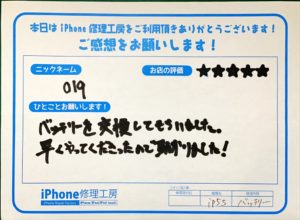 本日は iPhone 修理工房をご利用頂きありがとうございます!
ご感想をお願いします!
ニックネーム
お店の評価
019
★★★★★
ひとことお願いします!
バッテリーを交換してもらいました。
早くやってくださったので助かりました!
iPhone修理工房
iP5S
バッテリー